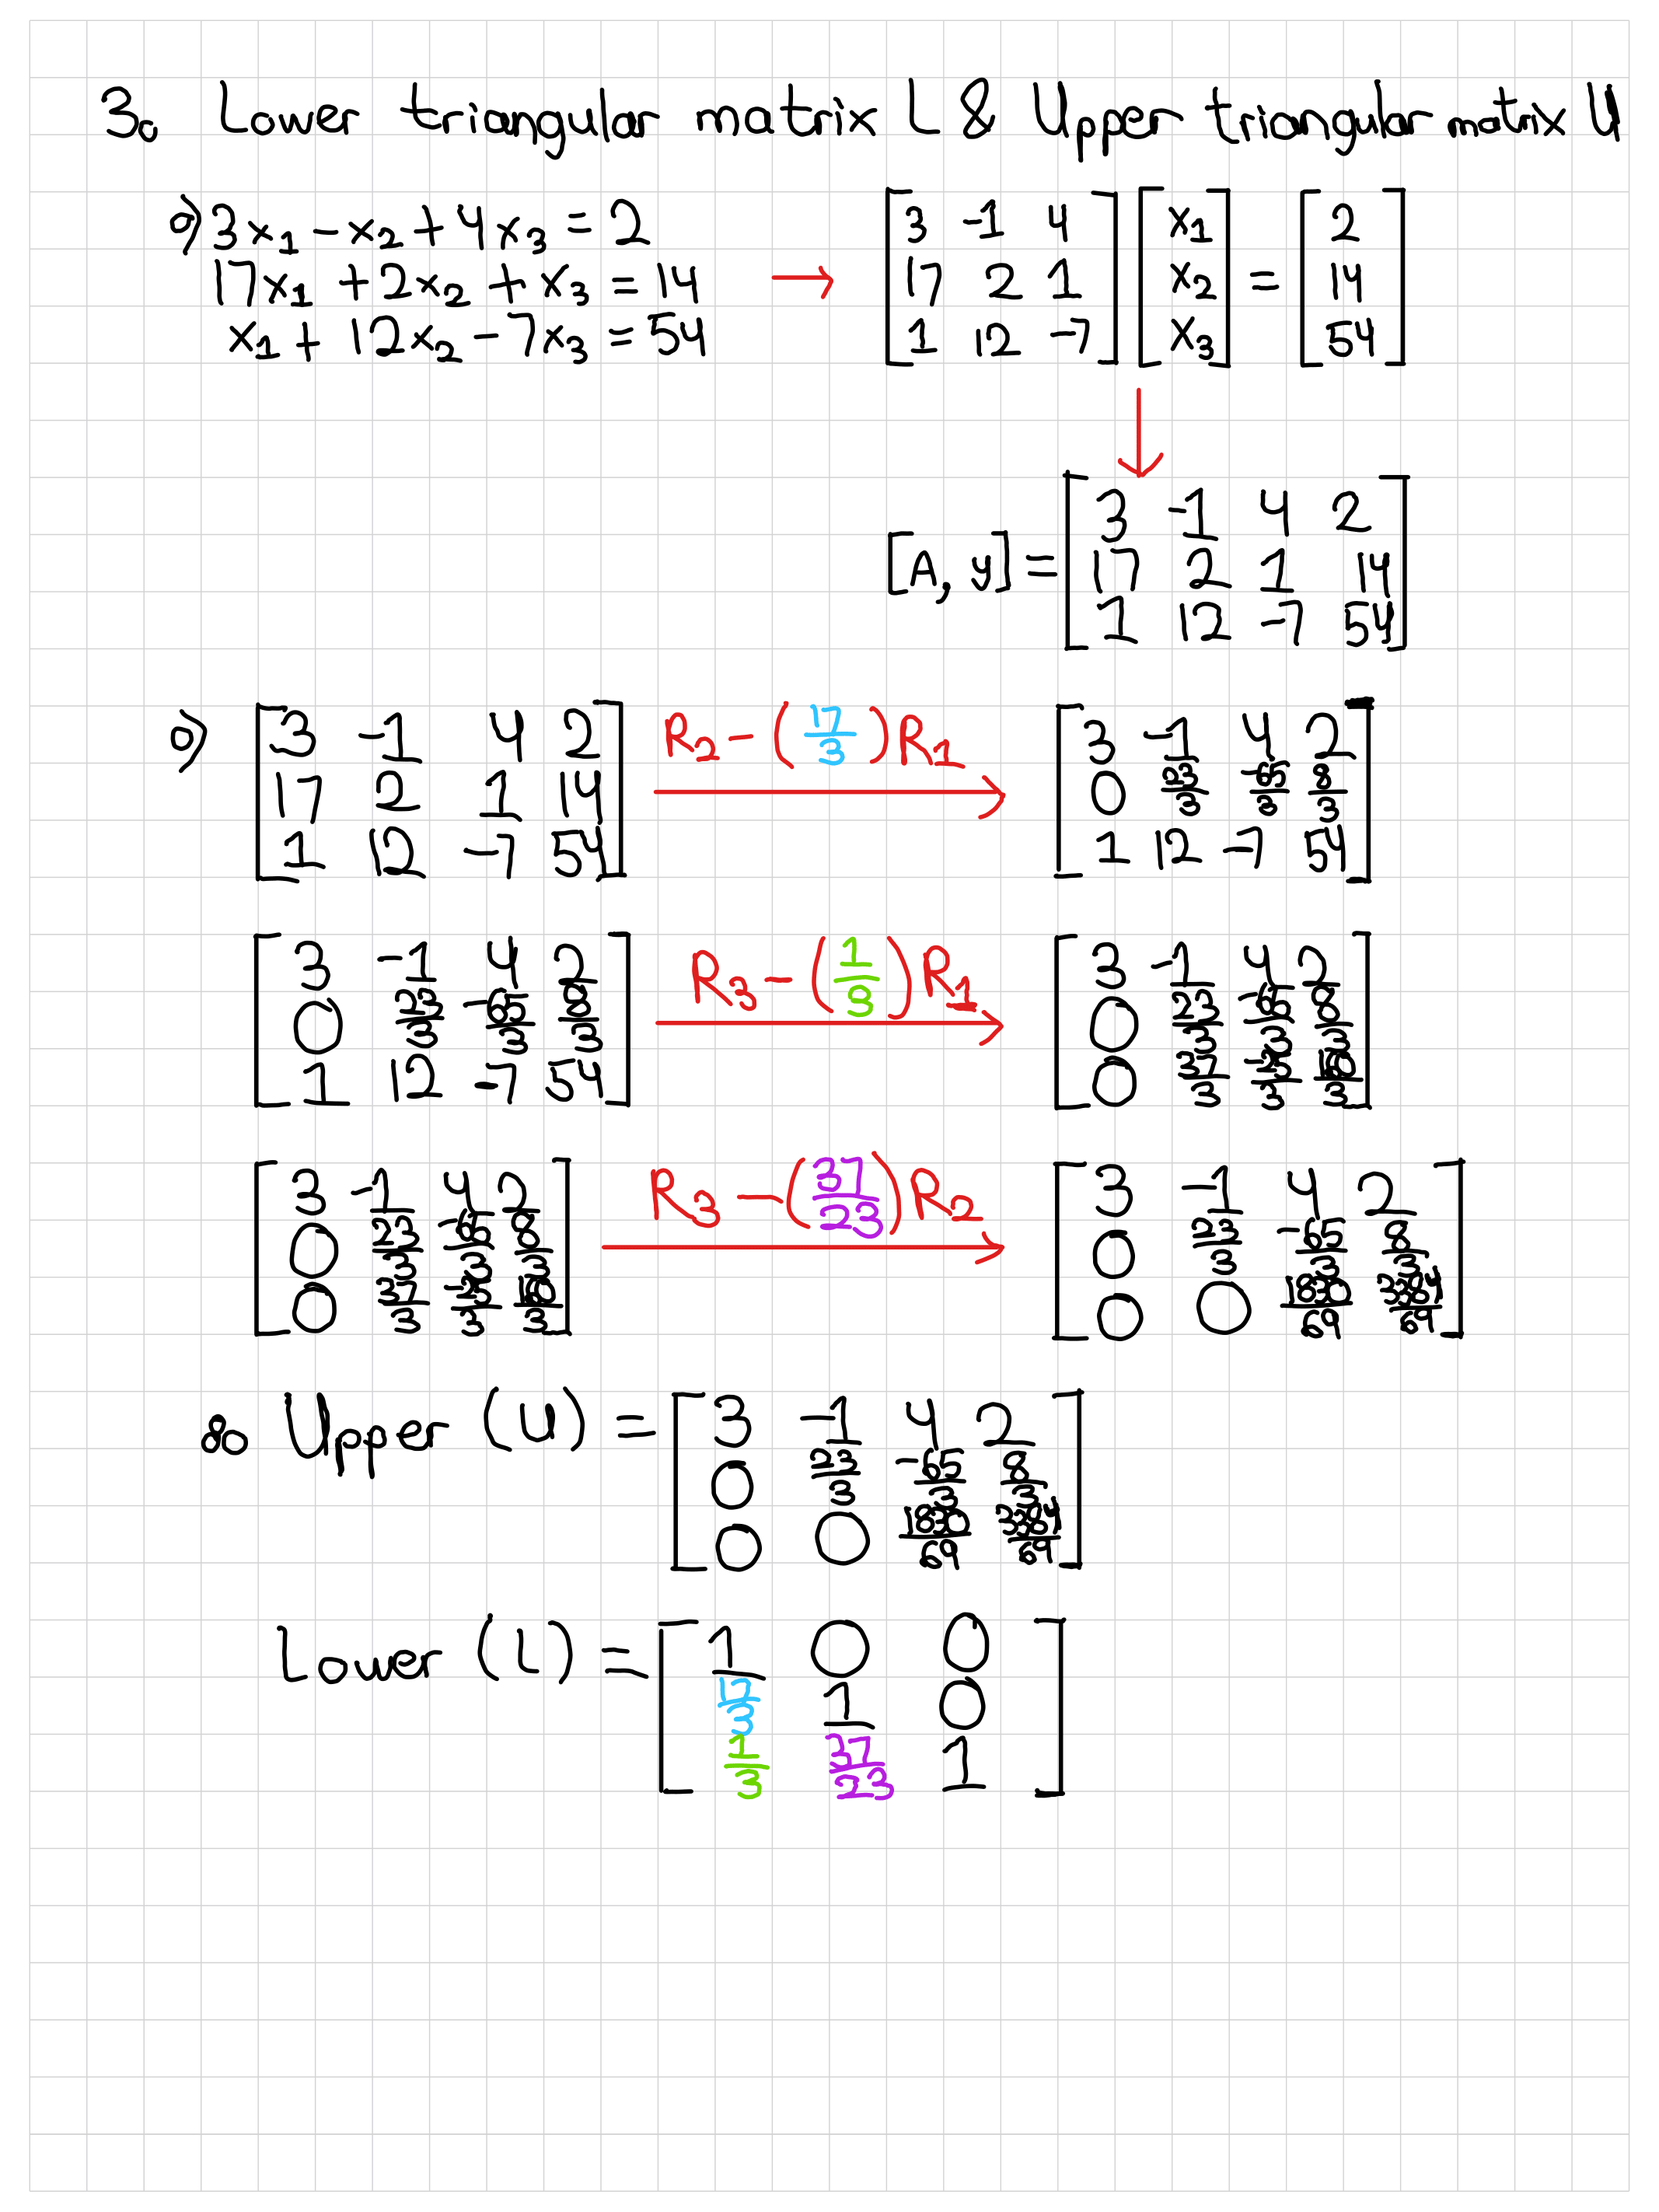 3. Lower triangular matrix L & Upper triangular matrix U
a) 3x₁ - x₂ + 4x₃ = 2
17x₁ + 2x₂ + x₃ = 14
x₁ + 12x₂ - 7x₃ = 54
→
[3 -1 4] [x₁] [2]
[17 2 1] [x₂] = [14]
[1 12 -7] [x₃] [54]
↓
[A, y] =
[3 -1 4 2]
[17 2 1 14]
[1 12 -7 54]
a)
[3 -1 4 2]
[17 2 1 14]
[1 12 -7 54]
R₂ - (17/3)R₁ →
[3 -1 4 2]
[0 23/3 -65/3 8/3]
[1 12 -7 54]
[3 -1 4 2]
[0 23/3 -65/3 8/3]
[1 12 -7 54]
R₃ - (1/3)R₁ →
[3 -1 4 2]
[0 23/3 -65/3 8/3]
[0 37/3 -25/3 160/3]
[3 -1 4 2]
[0 23/3 -65/3 8/3]
[0 37/3 -25/3 160/3]
R₃ - (37/23)R₂ →
[3 -1 4 2]
[0 23/3 -65/3 8/3]
[0 0 1830/69 3384/69]
∴ Upper (U) =
[3 -1 4 2]
[0 23/3 -65/3 8/3]
[0 0 1830/69 3384/69]
Lower (L) =
[1 0 0]
[17/3 1 0]
[1/3 37/23 1]